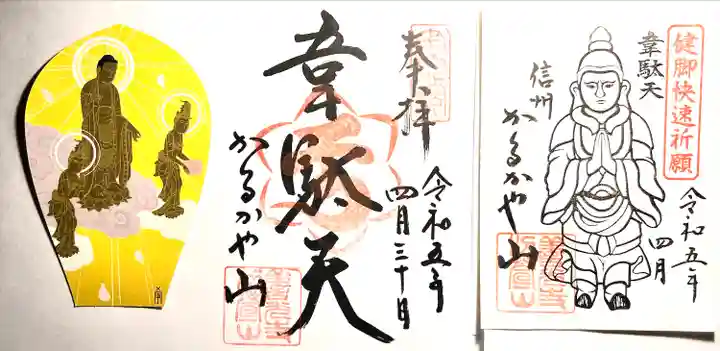 奉拝
韋駄天
かるかや山
令和五年
四月三十日
健脚快速祈願
韋駄天
信州
かるかや山
令和五年
四月